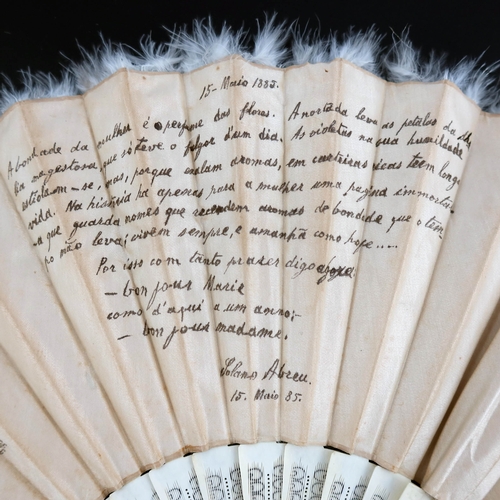 15- Maio 1885.
A bondade da mulher é o perfume das flores. A nortada leva as petalas da
magestosa, que só teve o fulgor d'um dia. As violetas na sua humildade
estiolam-se, mas, porque exalam aromas, em carteiras ricas teem longa
vida. Na historia ha apenas para a mulher uma pagina immortal:
a que guarda nomes que recendem aromas de bondade que o tem-
po não leva; vivem sempre, e amanhã como hoje....
Por isso com tanto praser digo agora:
- bon jour Marie
como d'aqui a um anno;-
- bon jour madame.
Solano Abreu.
15. Maio 85.